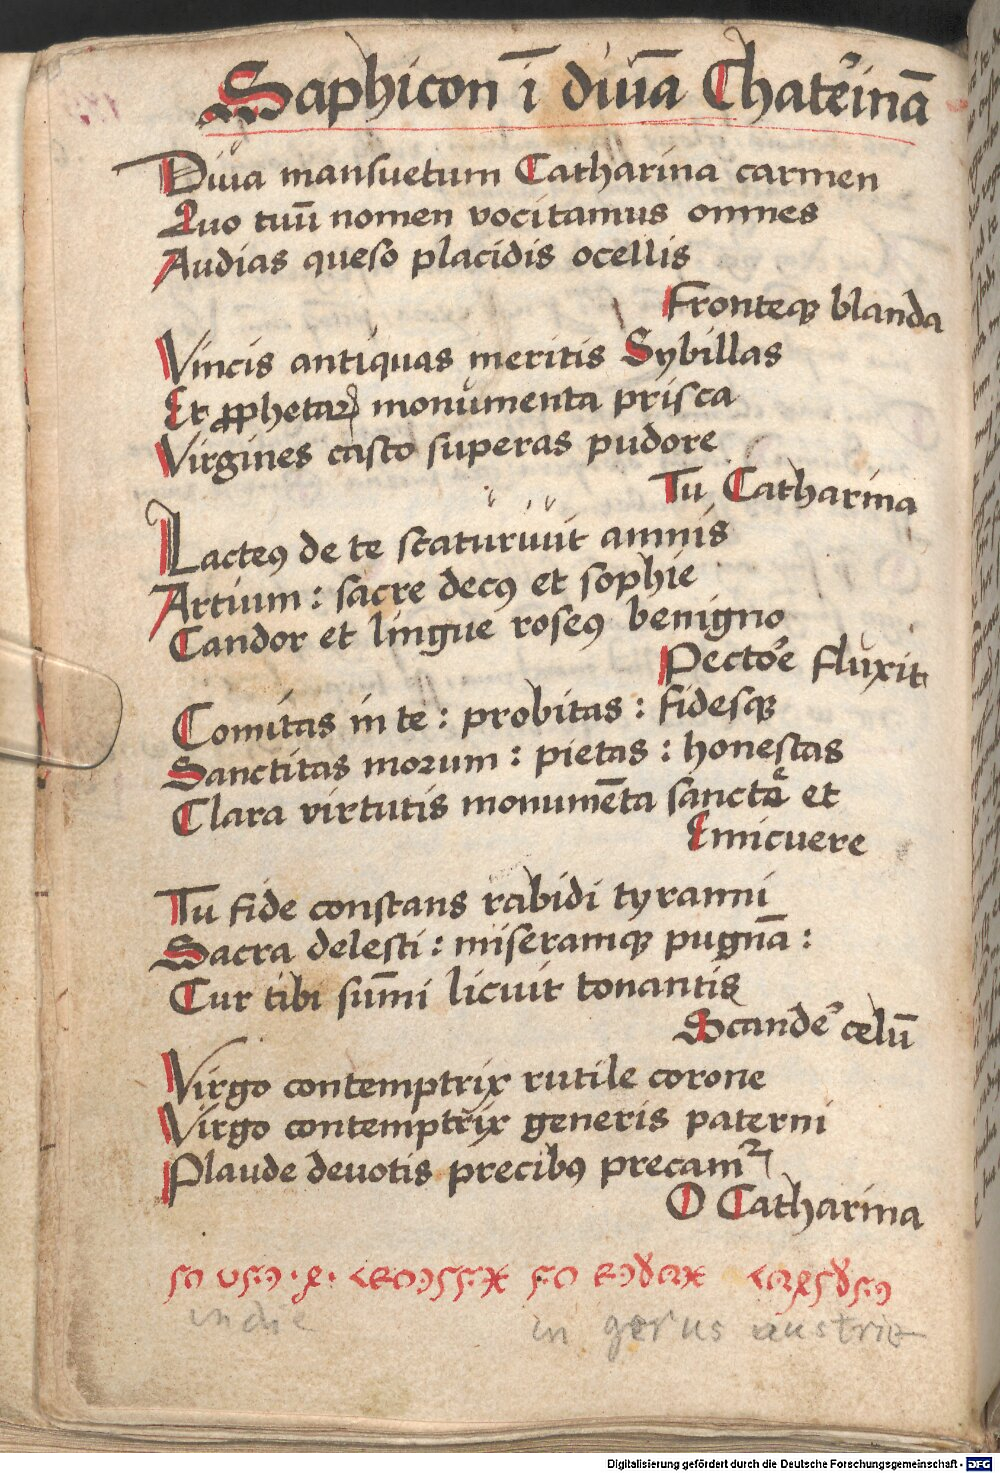 Saphicon ī diuā Chaterinā
Diua mansuetum Catharina carmen
Quo tuū nomen vocitamus omnes
Audias queso placidis ocellis
Fronteqꝫ blanda
Vincis antiquas meritis Sybillas
Et ꝓphetaꝝ monumenta prisca
Virgines casto superas pudore
Tu Catharina
Lacteꝰ de te scaturiuit amnis
Artium : sacre decꝰ et sophie
Candor et lingue roseꝰ benigno
Pectoꝛe fluxit
Comitas in te : probitas : fidesqꝫ
Sanctitas moꝛum : pietas : honestas
Clara virtutis monumēta sancta et
Emicuere
Tu fide constans rabidi tyranni
Sacra delesti : miseramqꝫ pugnā :
Cur tibi sūmi licuit tonantis
Scande᷒ celū
Virgo contemptrix rutile corone
Virgo contemptrix generis paterni
Plaude deuotis precibꝰ precamꝛ
O Catharina
in die in gerus austrie
Digitalisierung gefördert durch die Deutsche Forschungsgemeinschaft - DFG